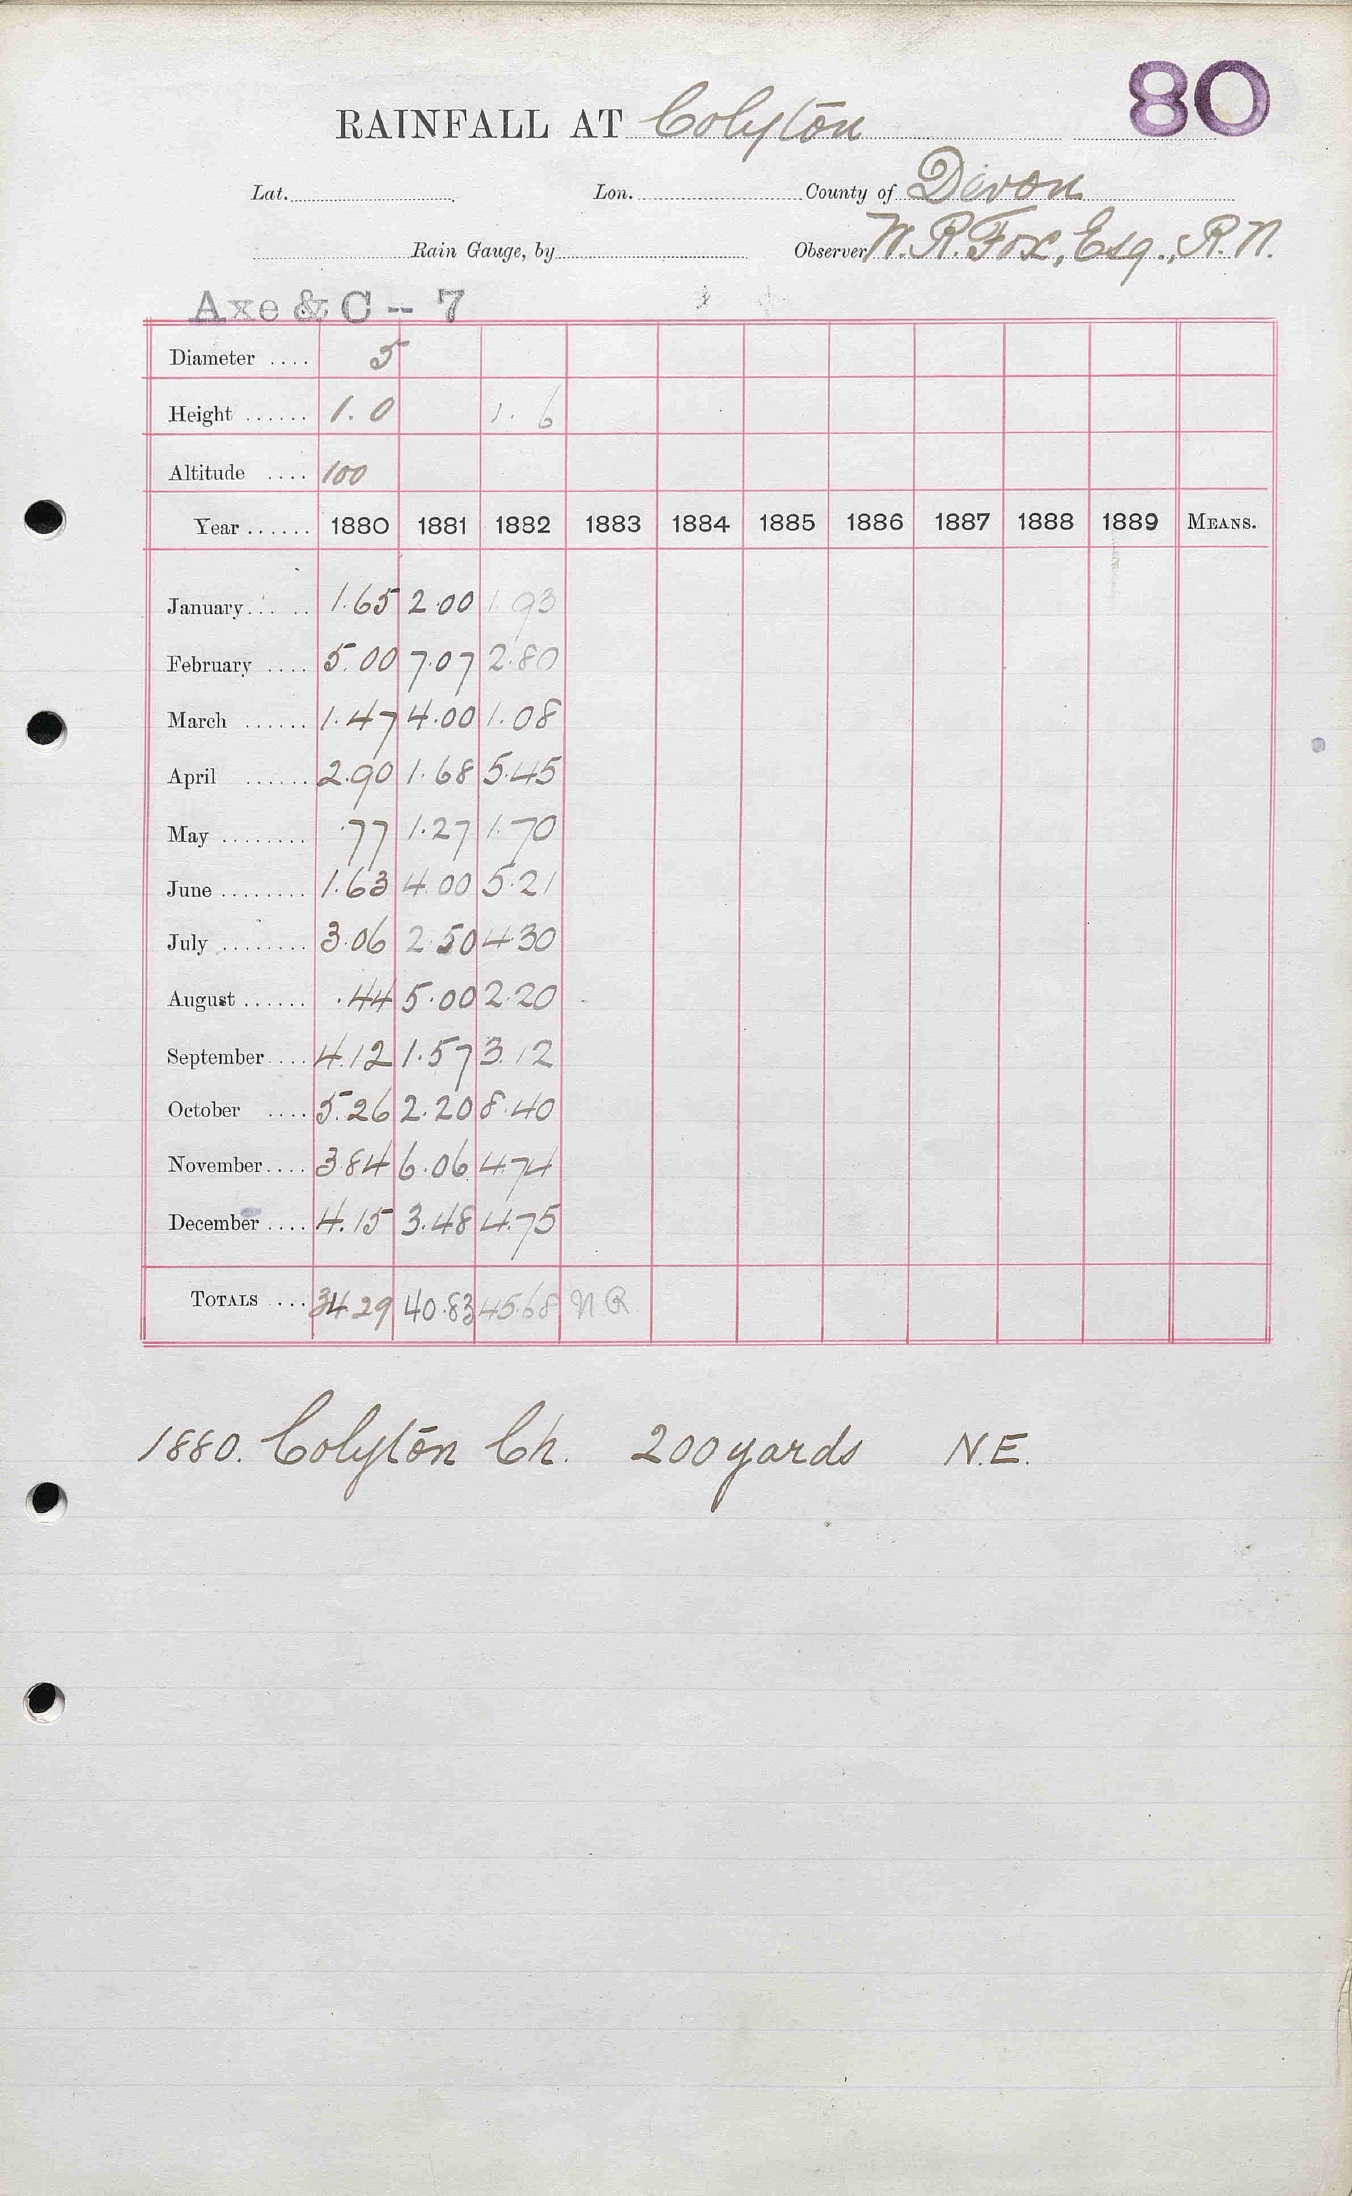 80
RAINFALL AT Colyton
Lat. Lon. County of Devon
Rain Gauge, by Observer W. R. Fox, Esq., R.N.
Axe & C - 7
Diameter .... 5
Height ...... 1. 0 1. 6
Altitude .... 100
Year ...... 1880 1881 1882 1883 1884 1885 1886 1887 1888 1889 MEANS.
January ..... 1.65 2.00 1.93
February .... 5.00 7.07 2.80
March ...... 1.47 4.00 1.08
April ...... 2.90 1.68 5.45
May ........ .77 1.27 1.70
June ........ 1.63 4.00 5.21
July ........ 3.06 2.50 4.30
August ...... .44 5.00 2.20
September .... 4.12 1.57 3.12
October .... 5.26 2.20 8.40
November .... 3.84 6.06 4.74
December .... 4.15 3.48 4.75
TOTALS .... 34.29 40.83 45.68 N R
1880. Colyton Ch. 200 yards N.E.